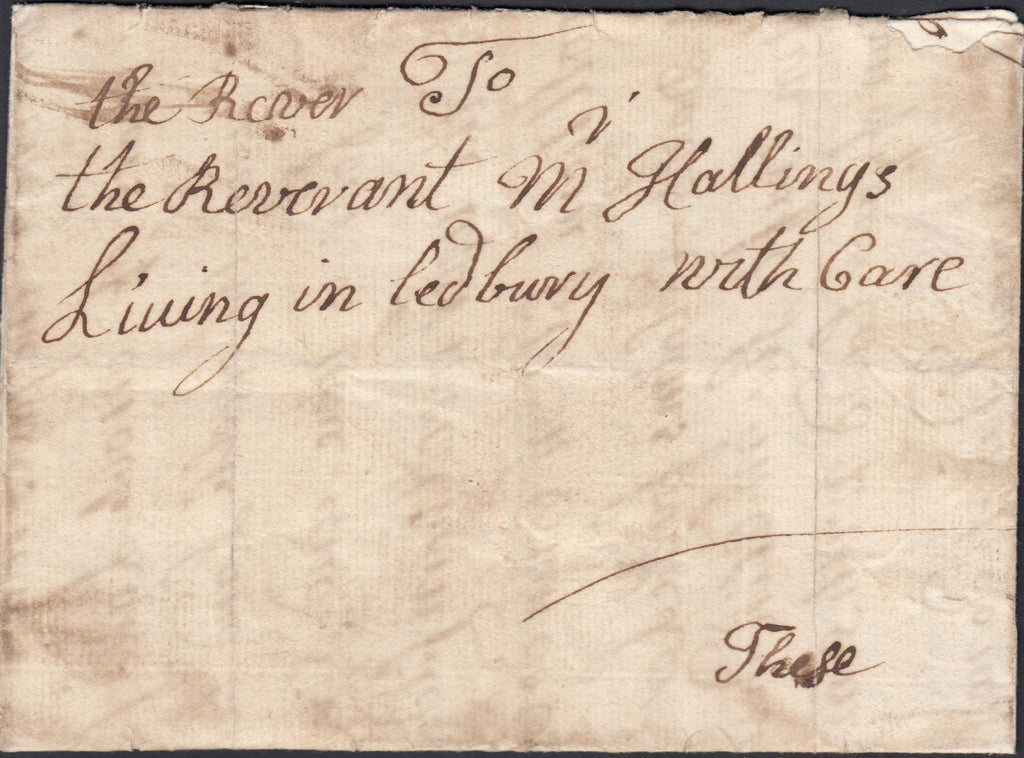 the Rever To
the Reverant Mr Hallings
Living in ledbury with Care
These